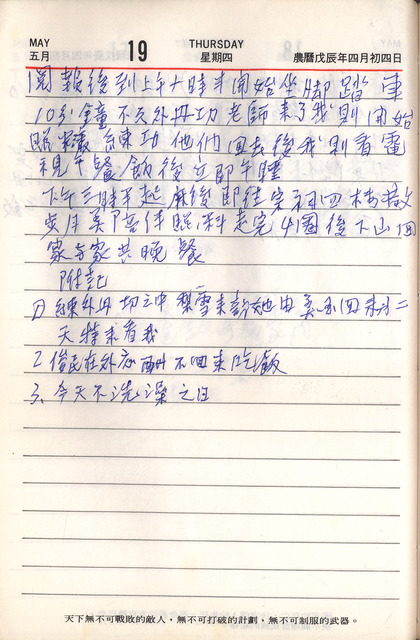 MAY 19 THURSDAY
五月 星期四 農曆戊辰年四月初四日
閱報後到上午十時半開始坐腳踏車
10分鐘不久外丹功老師來了我則開始
跟 練功他們回去後我則看電
視午餐飯後立即午睡
下午三時半起床後即往宗祠四樓散
步月美陪伴照料走完41圈後下山回
家与家共晚餐
附記
1) 練外丹功之中 雪來訪她由美国回來才二
天特來看我
2 俊民在外应酬不回來吃飯
3、今天不洗澡之日
天下無不可戰敗的敵人，無不可打破的計劃，無不可制服的武器。